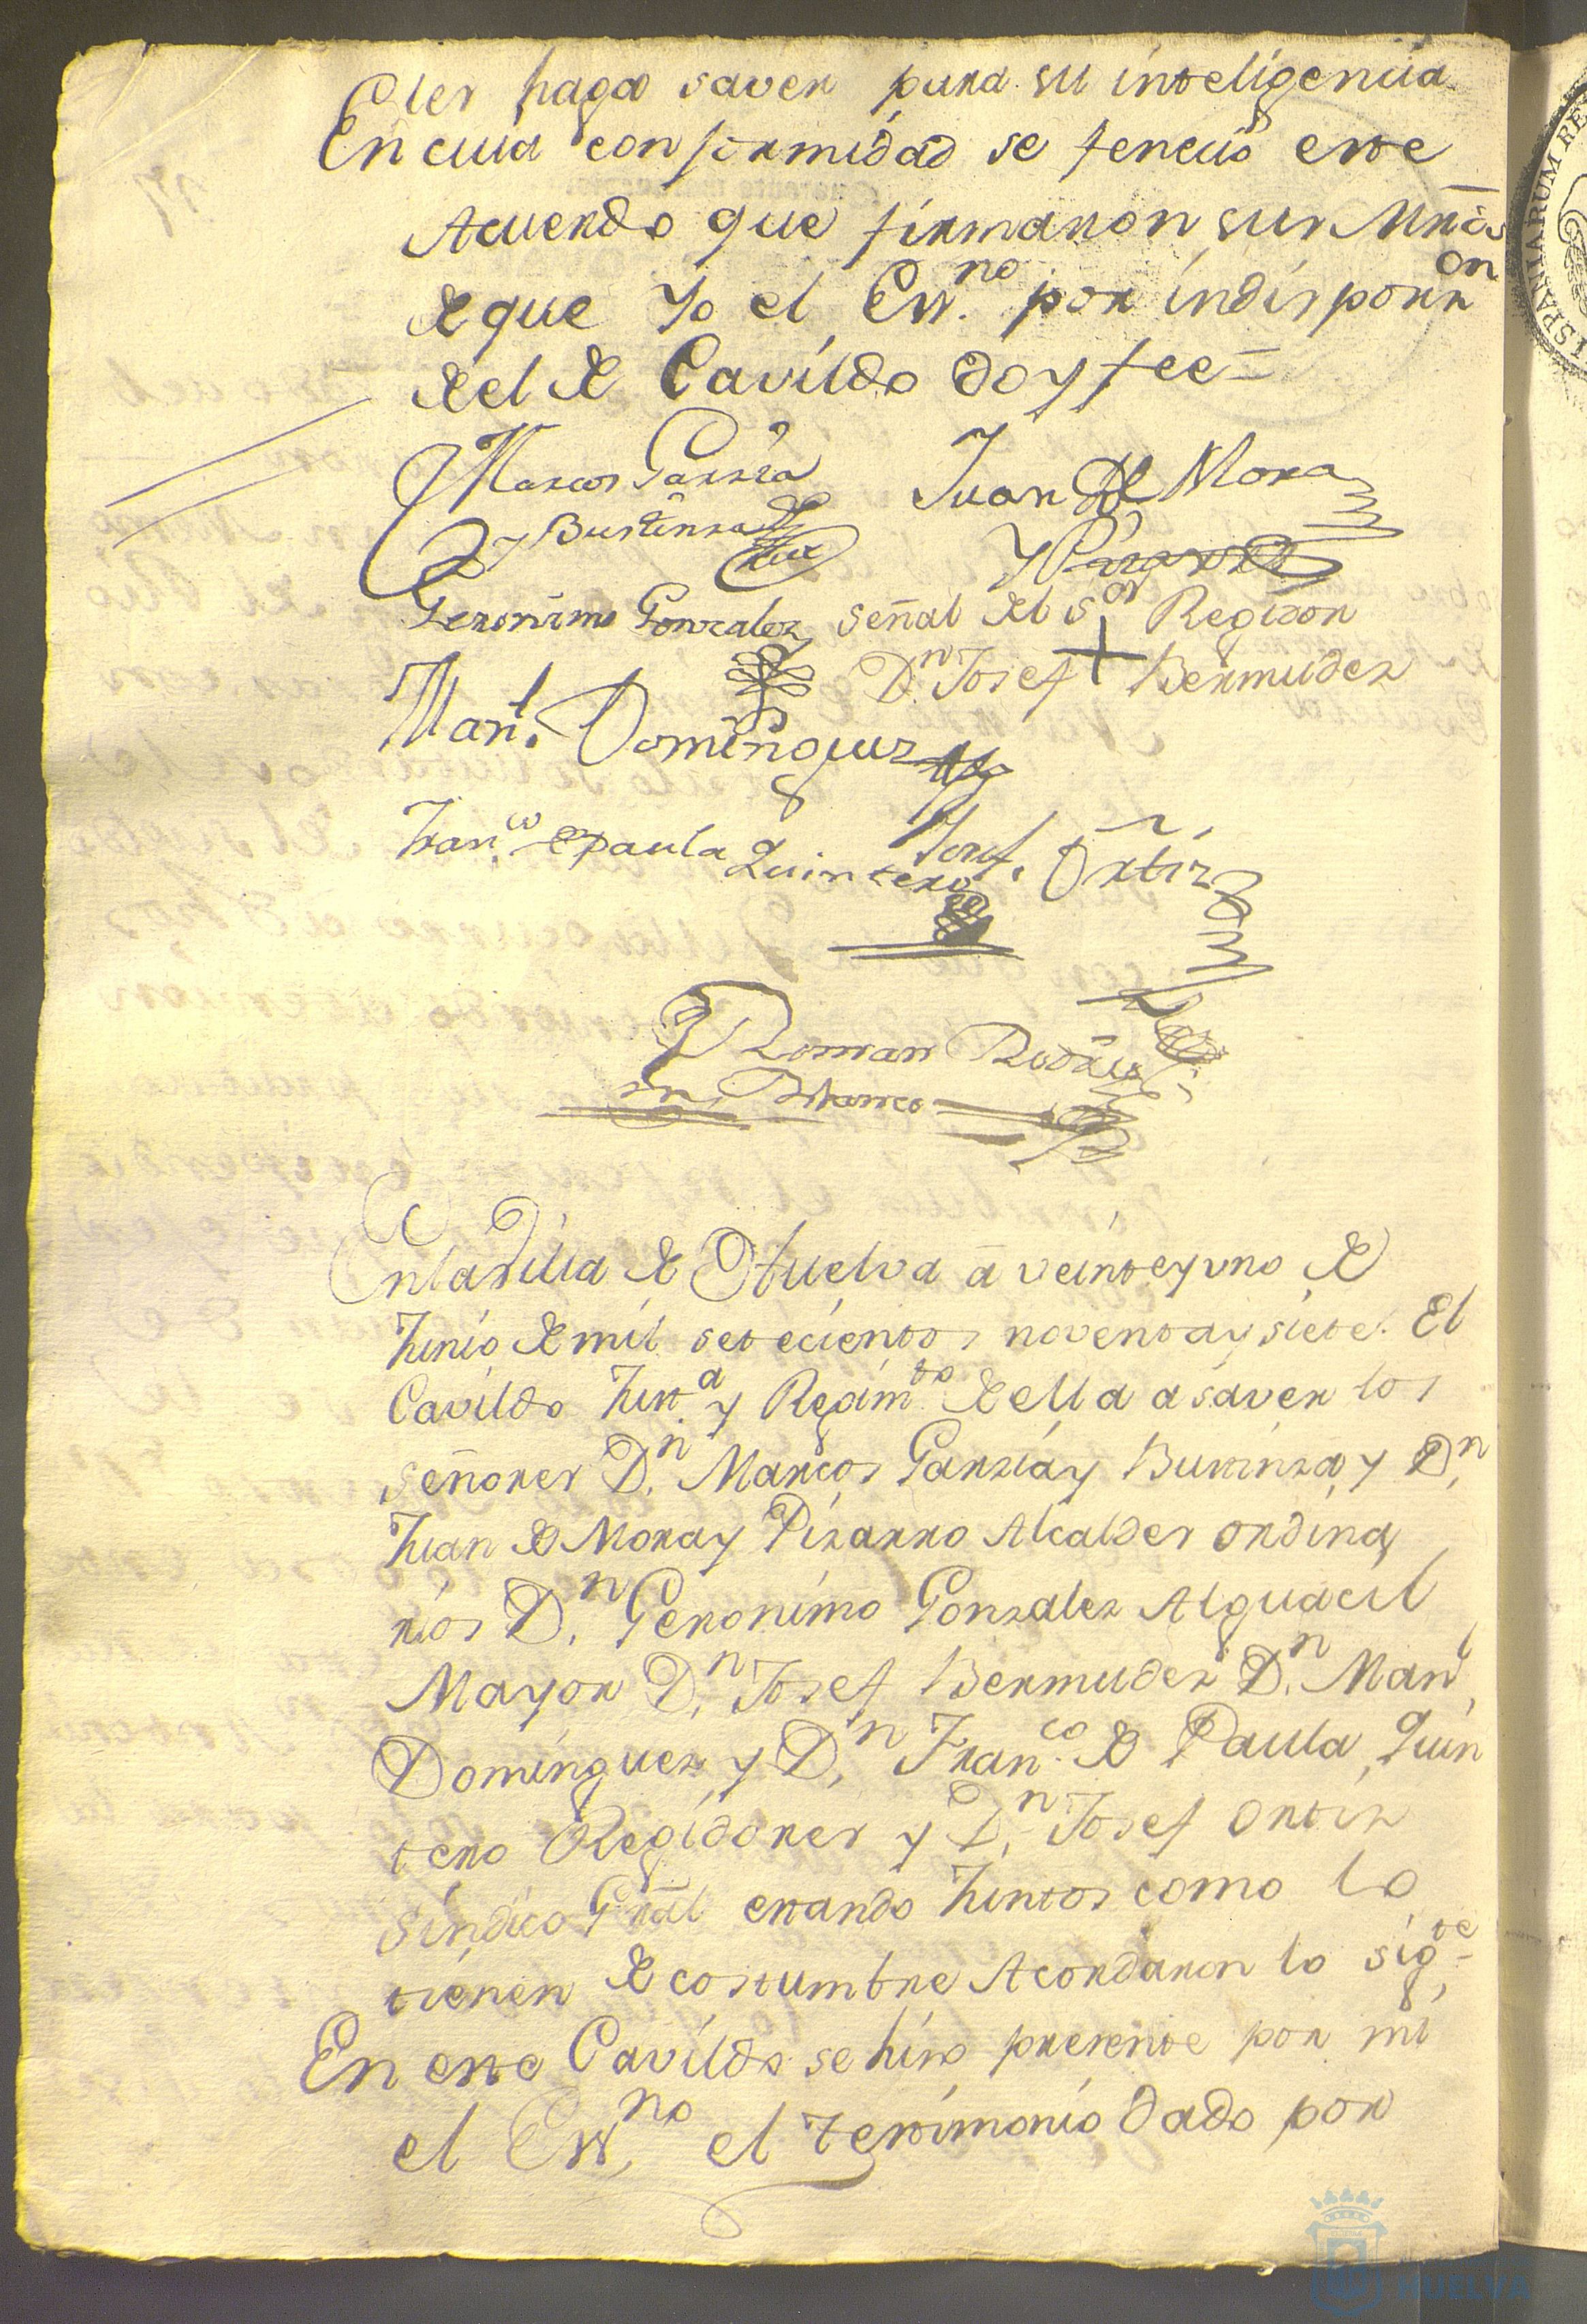 les haga saver para su inteligencia
En cuia conformidad se fenecio este
Acuerdo que firmaron sus Mrds
de que Yo el Essno. por indisposon
del de Cavildo doy fee =
Marcos Garzia Juan de Mora
y Bustinza y Pizarro
Geronimo Gonzalez Señal del Sor. Regidor
Dn. Josef + Bermudez
Manl. Dominguez
Franco. de Paula Quintero Josef. Ortiz
Roman Rodrig
Blanco
En la Villa de Huelva a veinte y uno de
Junio de mil setecientos noventa y siete. El
Cavildo Justa. y Regimto. de ella a saver los
señores Dn. Marcos Garzia y Bustinza, y Dn.
Juan de Mora y Pizarro Alcaldes ordina
rios Dn. Geronimo Gonzalez Alguacil
Mayor Dn. Josef Bermudez Dn. Manl.
Dominguez y Dn. Franco. de Paula Quin
tero Regidores y Dn. Josef Ortiz
Sindico Gral estando Juntos como lo
tienen de costumbre Acordaron lo sigte.
En este Cavildo se hizo presente por mi
el Essno. el testimonio dado por
ISPANIARUM RE
HUELVA